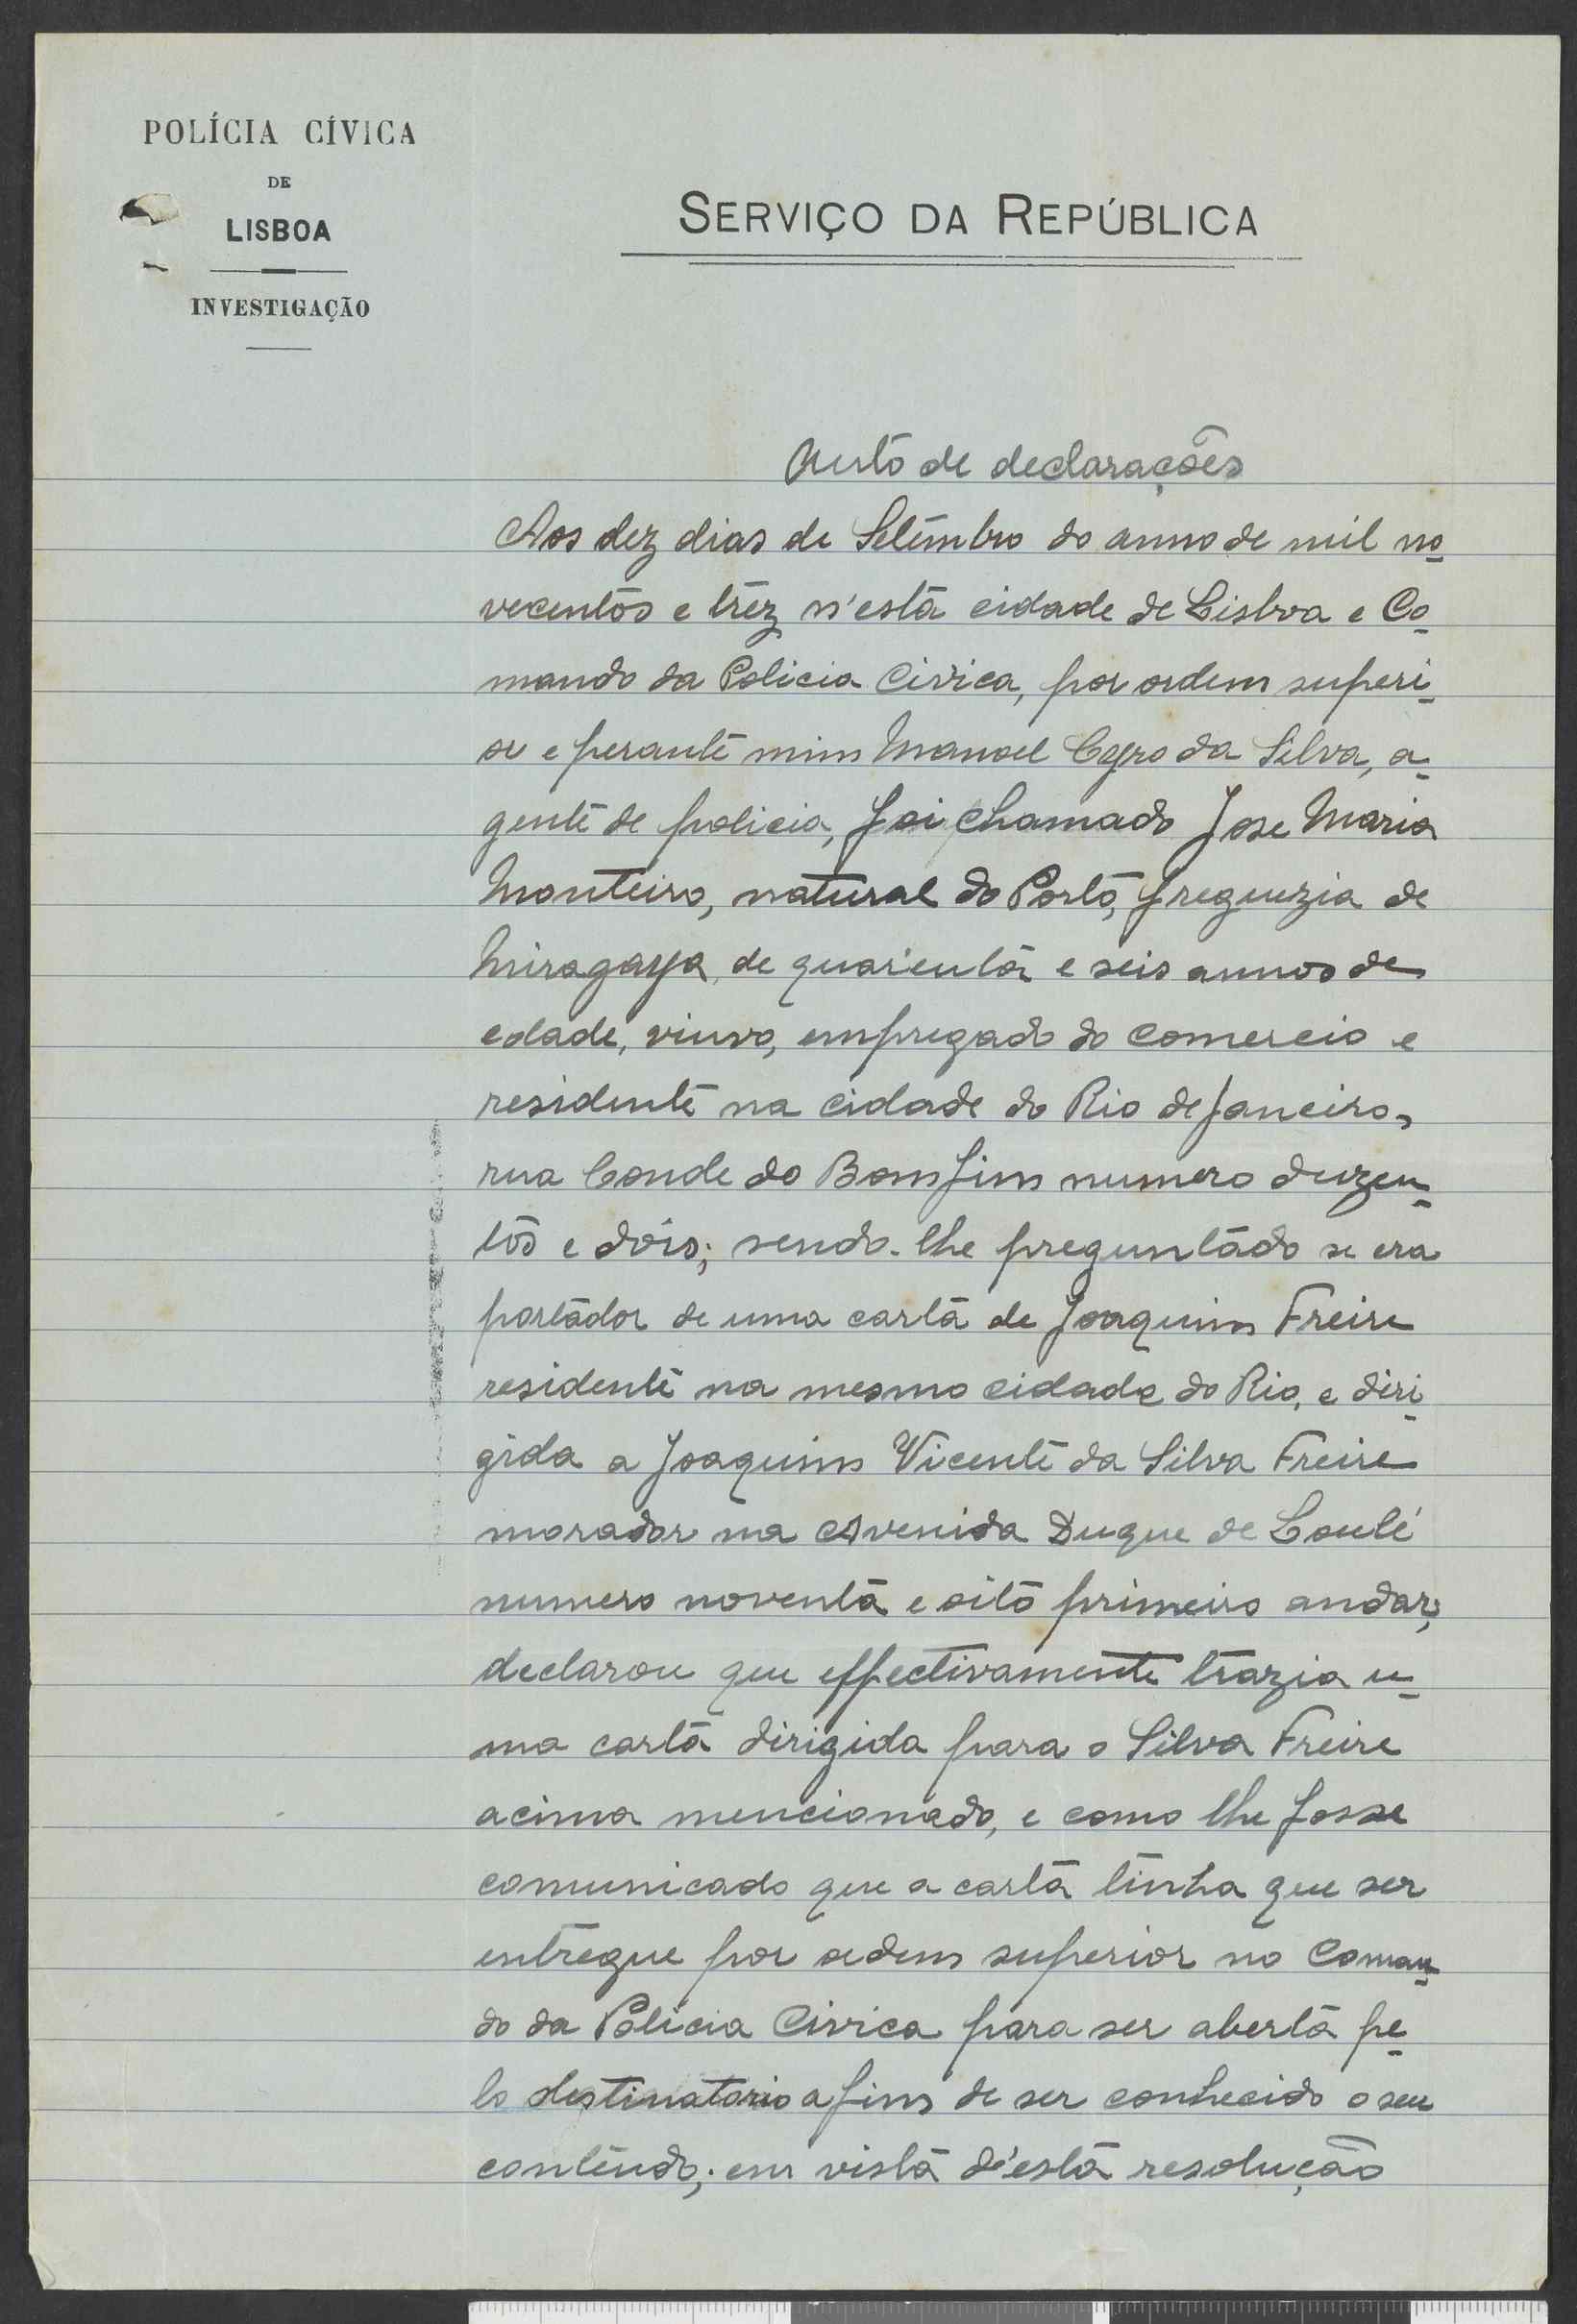 POLÍCIA CÍVICA
DE
LISBOA
INVESTIGAÇÃO
SERVIÇO DA REPÚBLICA
Auto de declarações
Aos dez dias de Setembro do anno de mil no-
vecentos e trez n'esta cidade de Lisboa e Co-
mando da Policia Civica, por ordem superi-
or e perante mim Manoel Cyro da Silva, a-
gente de policia, foi chamado Jose Maria
Monteiro, natural do Porto, freguezia de
Miragaya, de quarenta e seis annos de
edade, viuvo, empregado do comercio e
residente na cidade do Rio de Janeiro,
rua Conde do Bomfim numero duzen-
tos e dois; sendo-lhe preguntado se era
portador de uma carta de Joaquim Freire
residente na mesmo cidade do Rio, e diri-
gida a Joaquim Vicente da Silva Freire
morador na Avenida Duque de Loulé
numero noventa e oito primeiro andar,
declarou que effectivamente trazia u-
ma carta dirigida para o Silva Freire
acima mencionado, e como lhe fosse
comunicado que a carta tinha que ser
entregue por ordem superior no Coman-
do da Policia Civica para ser aberta pe-
lo destinatario a fim de ser conhecido o seu
conteudo; em vista d'esta resolução